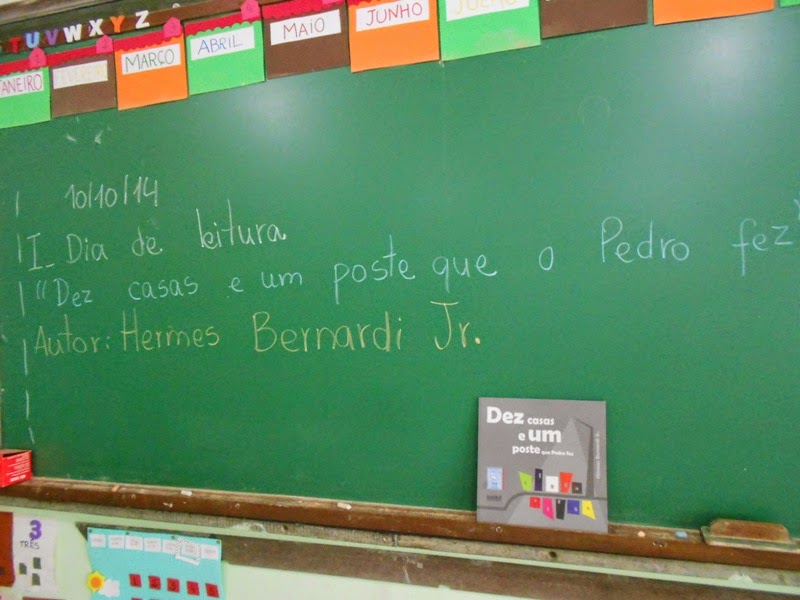 T U V W X Y Z
JANEIRO FEVEREIRO MARÇO ABRIL MAIO JUNHO JULHO
10/10/14
I_ Dia de leitura
"Dez casas e um poste que o Pedro fez"
Autor: Hermes Bernardi Jr.
Dez casas
e um
poste que Pedro fez
Hermes Bernardi Jr.
3
TRÊS